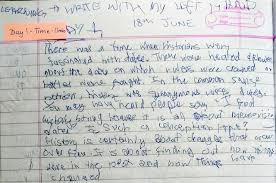 LEARNING → WRITE WITH MY LEFT HAND
DAY 1
18TH JUNE
Day 1 - Time -
There was a time when historians were
fascinated with dates. There were heated debates
about the dates on which rulers were crowned or
battles were fought. In the common sense
notion, history was synonymous with dates.
You may have heard people say, "I find
history boring because it is all about memorising
dates". Is such a conception true?
History is certainly about changes that occur
over time. It is about finding out how things
were in the past and how things have
changed.